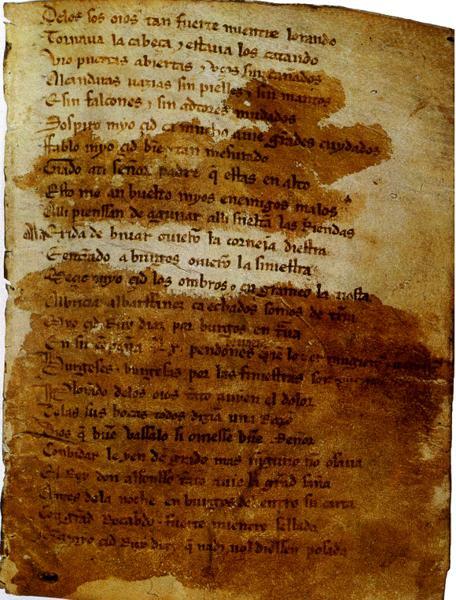 Delos sos oios tan fuerte mientre lorando
Tornava la cabeça ⁊ estava los catando
Vio puertas abiertas ⁊ vços sin cañados
Alcandaras vazias sin pielles ⁊ sin mantos
E sin falcones ⁊ sin adtores mudados
Sospiro myo çid ca mucho avie grandes cuydados
Fablo myo çid bien ⁊ tan mesurado
Grado ati señor padre q estas en alto
Esto me an buelto myos enemigos malos
Alli pienssan de aguijar alli sueltan las Riendas
Exida de bivar ovieron la corneja diestra
E entrando a burgos ovieron la siniestra
Meçio myo çid los ombros ⁊ en grameo la tiesta
Albricia albarffanez ca echados somos de tierra
Myo çid Ruy diaz por burgos en trava
En su conpaña Lx pendones
Burgeses ⁊ burgesas por las finiestras son
Plorando delos oios tanto avyen el dolor
Delas sus bocas todos dizian una Razon
Dios q buen vassalo si oviesse buen Señor
Conbidar le yen de grado mas ninguno no osava
El Rey don alfonsso tanto avie la grand saña
Antes dela noche en burgos del entro su carta
Con grand Recabdo ⁊ fuerte mientre sellada
Que a myo çid Ruy diaz q nadi nol diessen posada